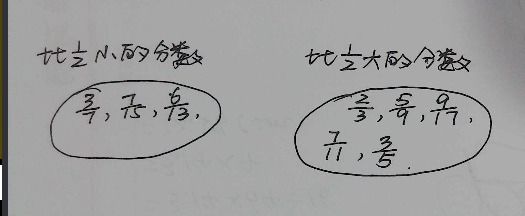 比1/2小的分数
3/7, 7/15, 6/13,
比1/2大的分数
2/3, 5/9, 9/17,
7/11, 3/5.